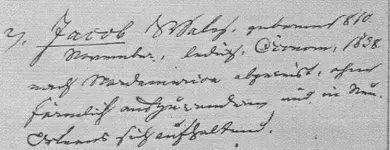 2, Jacob &Wals., geboren 1810.
November, ledich, Öconom, 1838
nach Nordamerica abgereist, ohne
förmlich auszuwandern und in Neu-
Orleans sich aufhaltend.